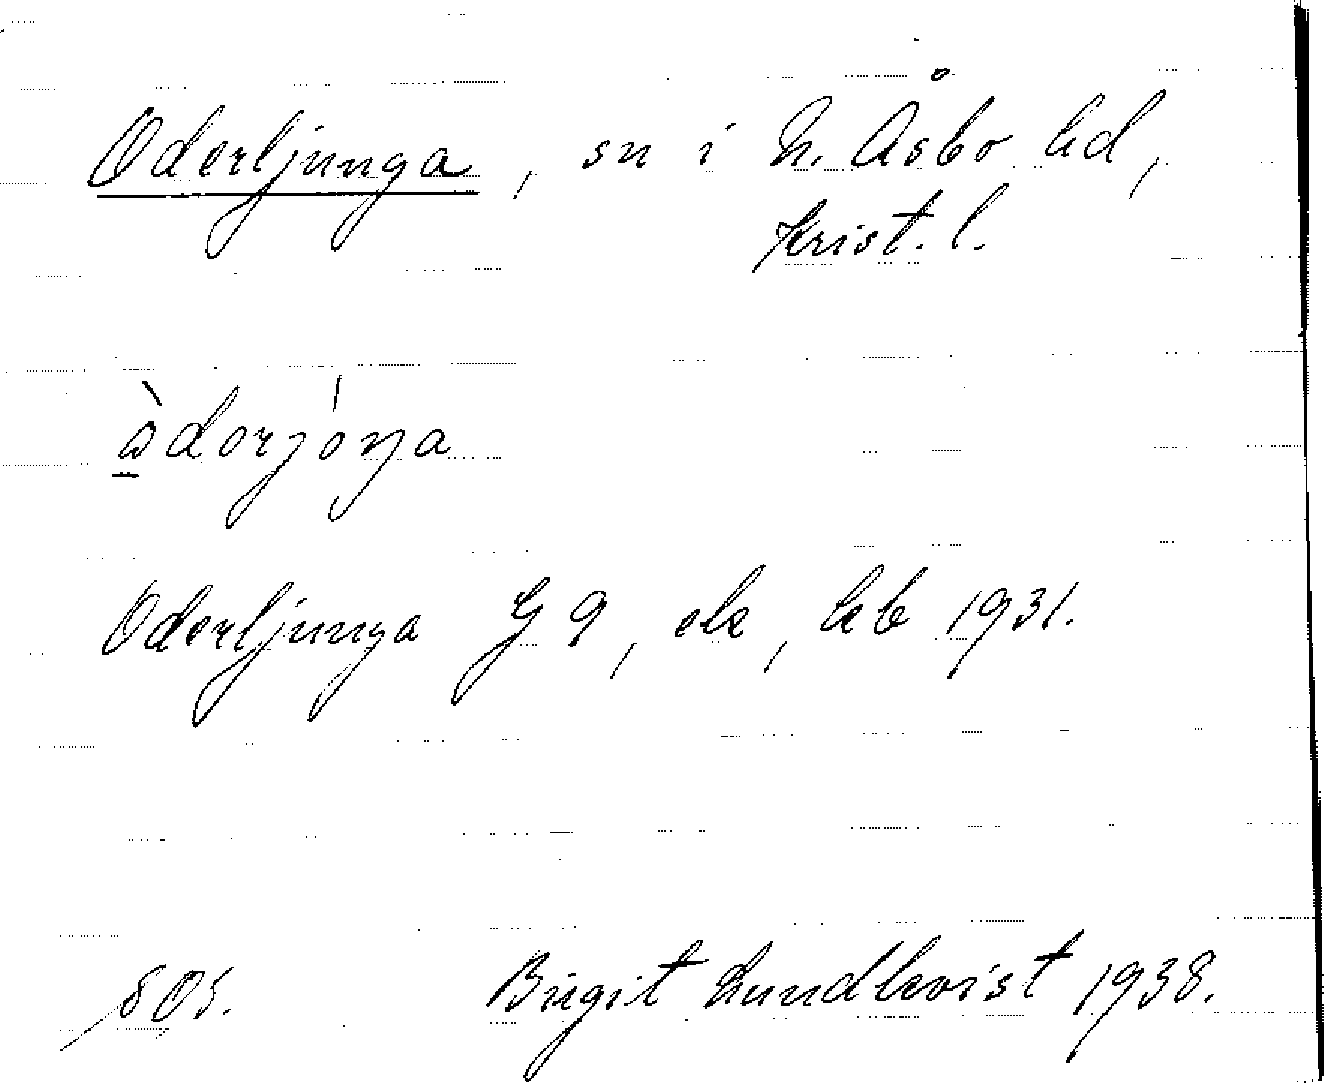 Oderljunga, sn i N. Åsbo hd,
Krist. l.
òdorjóŋa
Oderljunga G 9, ek, hb 1931.
SOS. Birgit Lundkvist 1938.